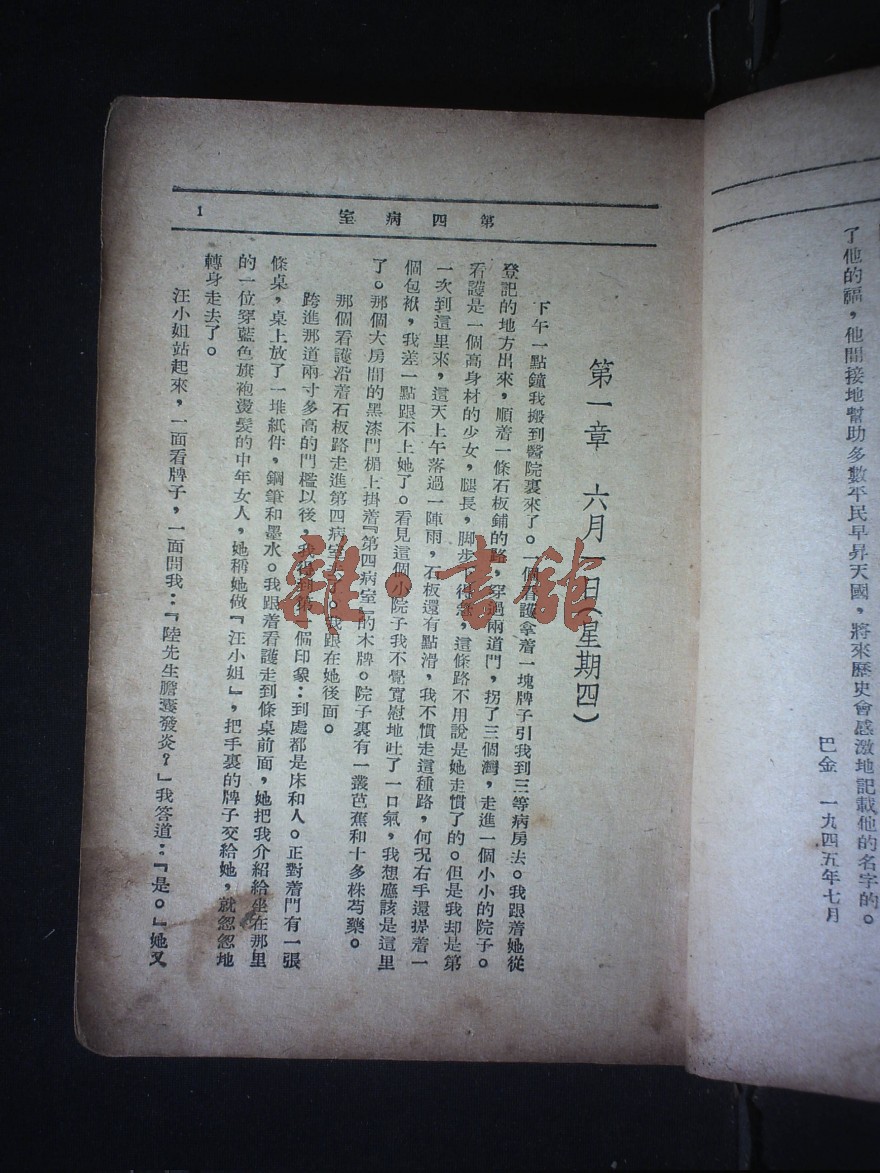 了他的福，他間接地幫助多數平民早昇天國，將來歷史會感激地記載他的名字的。
巴金　一九四五年七月
第四病室
1
第一章　六月一日（星期四）
下午一點鐘我搬到醫院裏來了。一個看護拿着一塊牌子引我到三等病房去。我跟着她從
登記的地方出來，順着一條石板鋪的路，穿過兩道門，拐了三個灣，走進一個小小的院子。
看護是一個高身材的少女，腿長，脚步下得急，這條路不用說是她走慣了的。但是我却是第
一次到這里來，這天上午落過一陣雨，石板還有點滑，我不慣走這種路，何况右手還提着一
個包袱，我差一點跟不上她了。看見這個小院子我不覺寬慰地吐了一口氣，我想應該是這里
了。那個大房間的黑漆門楣上掛着『第四病室』的木牌。院子裏有一叢芭蕉和十多株芍藥。
那個看護沿着石板路走進第四病室去了。我跟在她後面。
跨進那道兩寸多高的門檻以後，我得到第一個印象：到處都是床和人。正對着門有一張
條桌，桌上放了一堆紙件，鋼筆和墨水。我跟着看護走到條桌前面，她把我介紹給坐在那里
的一位穿藍色旗袍燙髮的中年女人，她稱她做『汪小姐』，把手裏的牌子交給她，就怱怱地
轉身走去了。
汪小姐站起來，一面看牌子，一面問我：『陸先生膽囊發炎？』我答道：『是。』她又
雜·書館